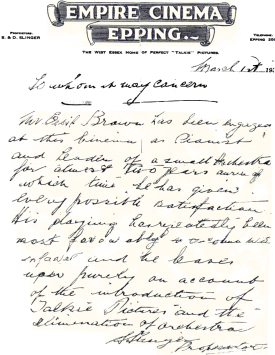 EMPIRE CINEMA
EPPING..
PROPRIETORS:
S. & D. SLINGER
TELEPHONE:
EPPING
THE WEST ESSEX HOME OF PERFECT "TALKIE" PICTURES
March 1st 193
To whom it may concern
Mr Brown has been engaged
at this Cinema as Pianist
and Leader of a small Orchestra
for almost two years during
which time he has given
every possible satisfaction
His playing has repeatedly been
most favourably
and he leaves
upon purely on account
of the introduction of
Talkie Pictures and the
elimination of orchestra
S Slinger
Proprietor